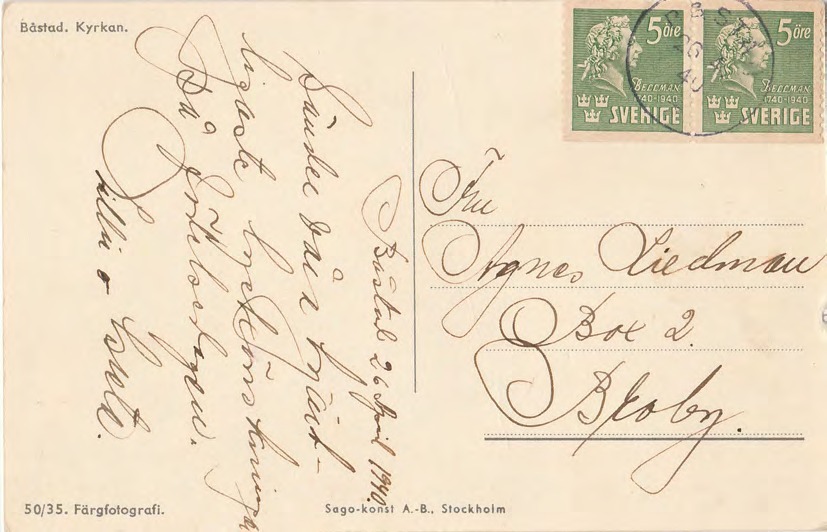 Båstad. Kyrkan.
Båstad 26 April 1940.
Sänder våra hjärt-
ligaste lyckönskningar
På födelsedagen.
Lilli o Gösta.
Fru
Agnes Liedman
Box 2.
Broby.
5 öre
BELLMAN
1740-1940
SVERIGE
5 öre
BELLMAN
1740-1940
SVERIGE
26
40
50/35. Färgfotografi.
Sago-konst A.-B., Stockholm